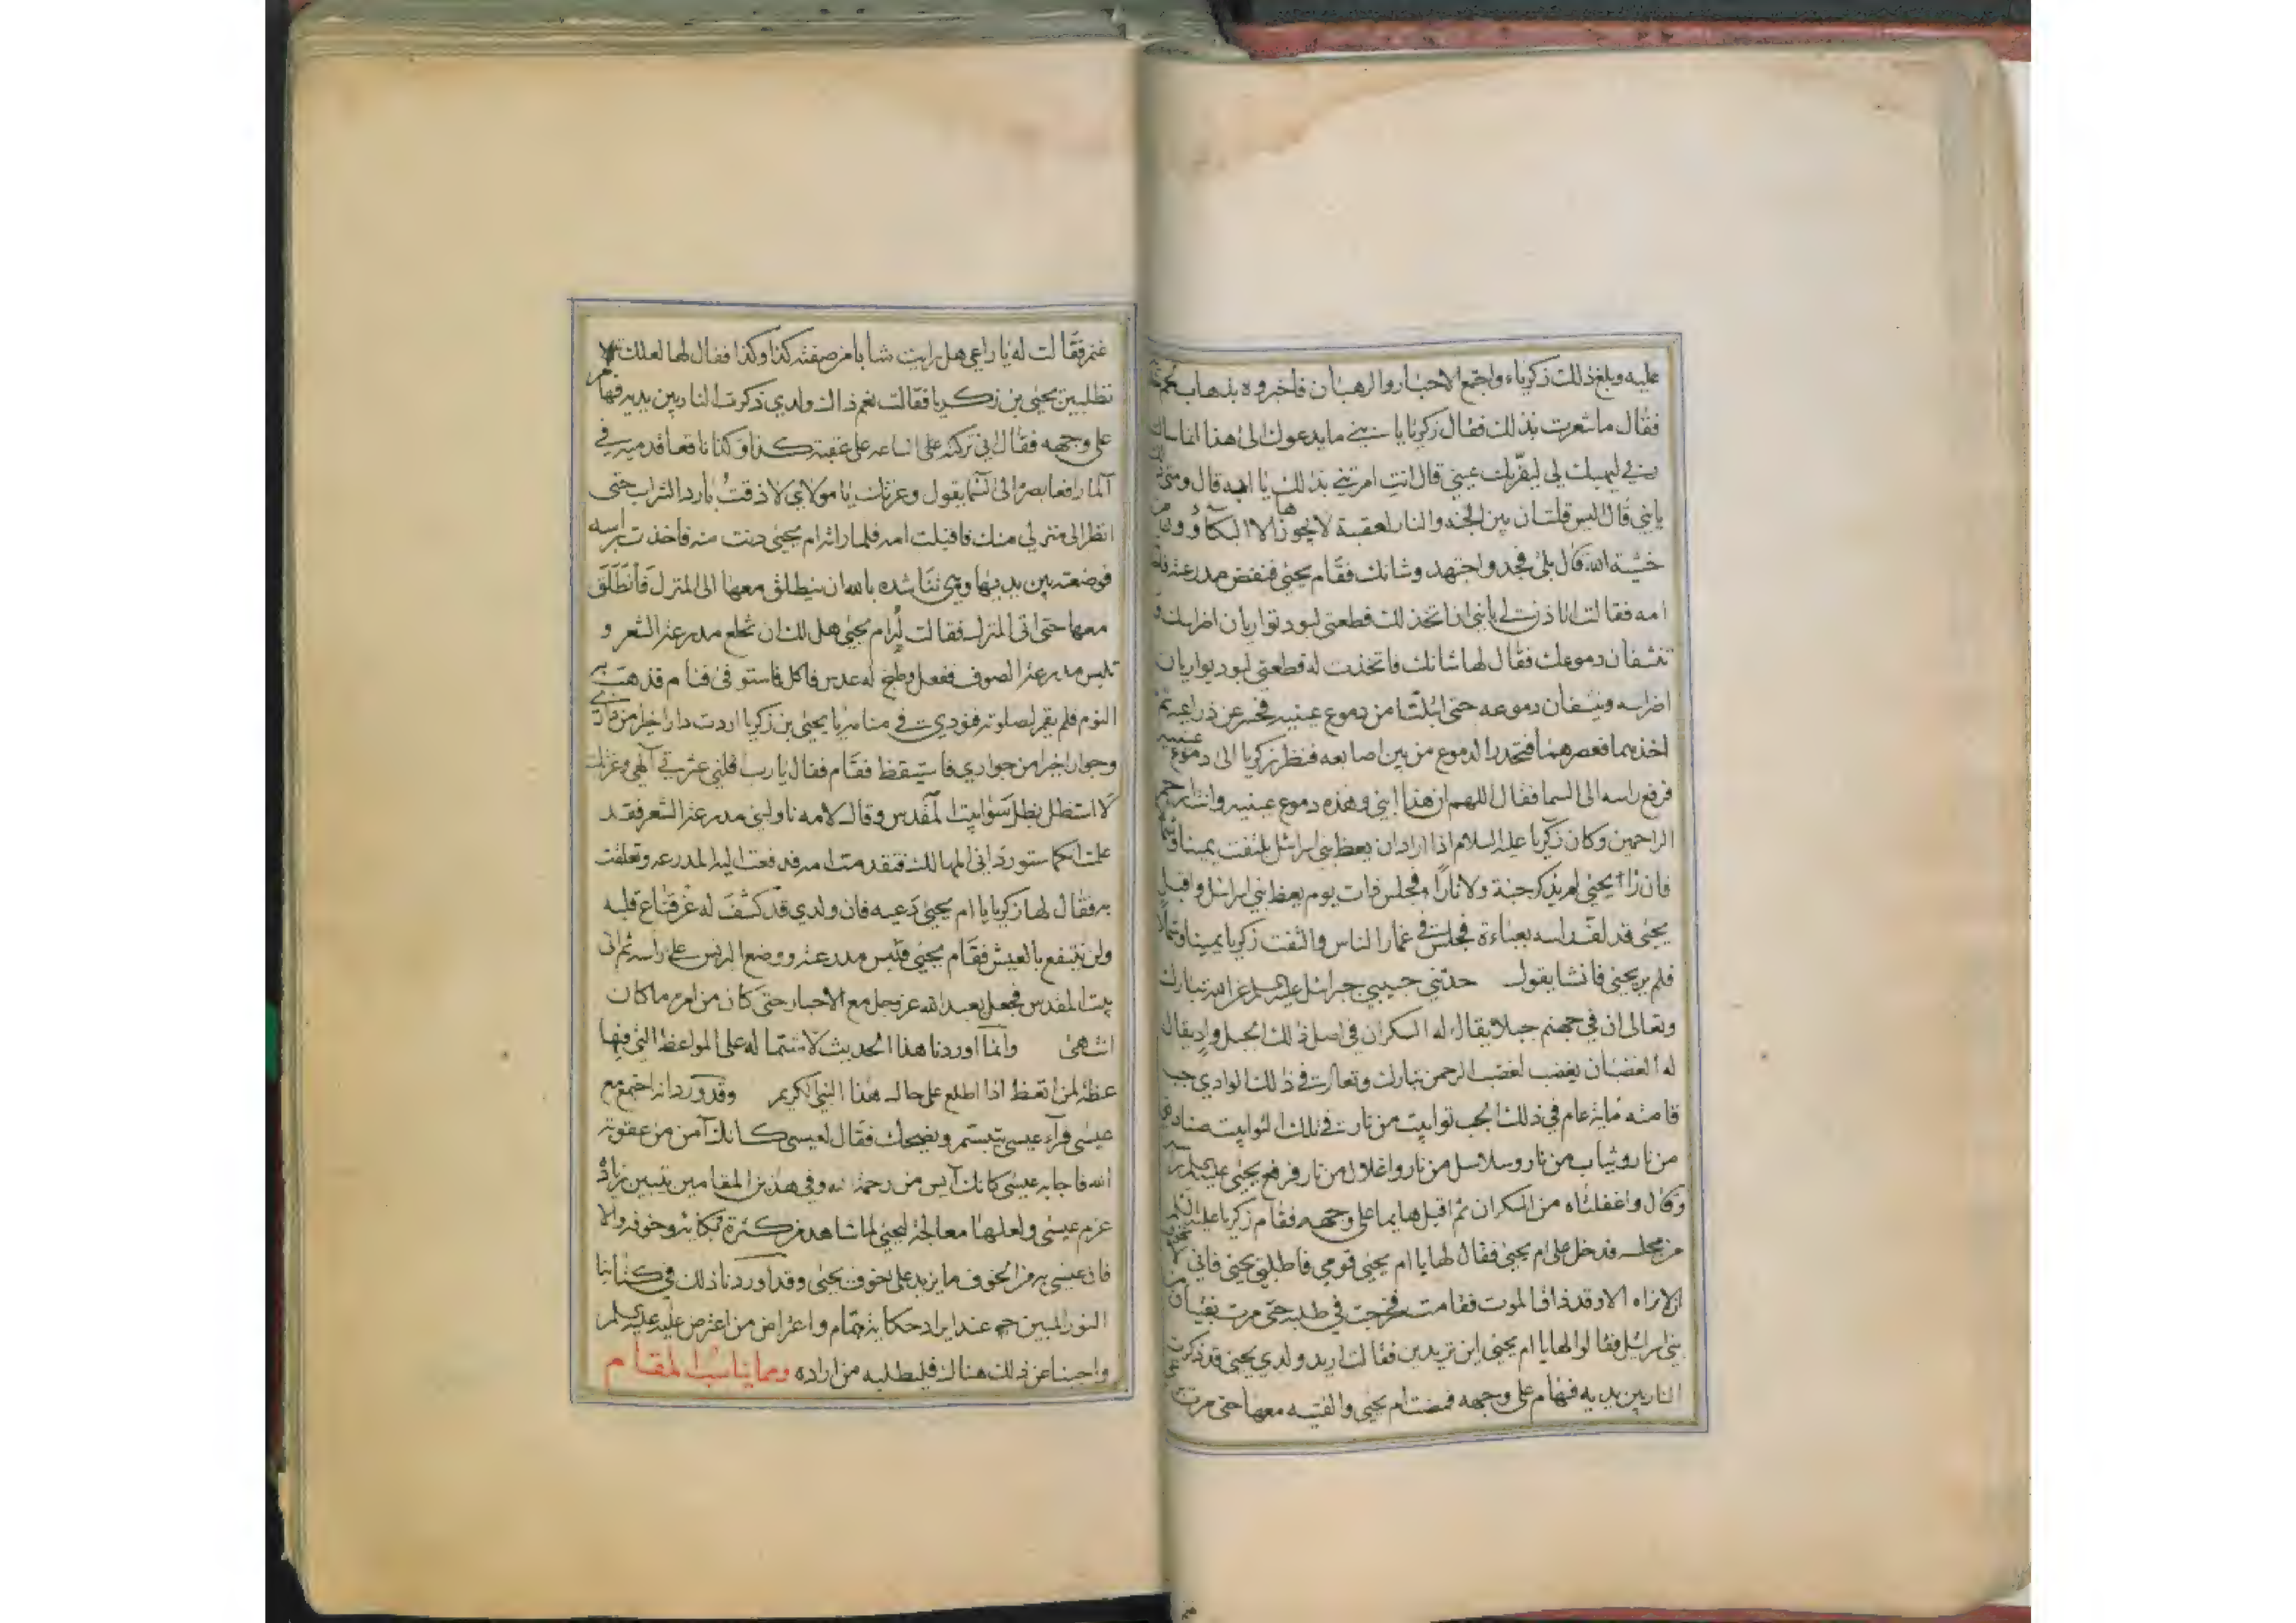 عليه وبلغ ذلك زكرياء واجتمع الاحبار والرهبان فاخبروه بذهاب لحم خديه
فقال ما شعرت بذلك فقال زكريا يا بني ما يدعوك الى هذا انما سالت
ربي ليهبك لي ليقر بك عيني قال انت امرتني بذلك يا ابه قال ومتى ذلك
يا بني قال اليس قلت ان بين الجنة والنار لعقبة لا يجوزها الا البكاؤون من
خشية الله قال بلى فجد واجتهد وشانك فقام يحيى فنفض مدرعته فاخذته
امه فقالت اتاذن لي يا بني ان اتخذ لك قطعتي لبود تواريان اضراسك و
تنشفان دموعك فقال لها شانك فاتخذت له قطعتي لبود يواريان
اضراسه وينشفان دموعه حتى ابتلتا من دموع عينيه فحسر عن ذراعيه ثم
اخذهما فعصرهما فتحدر الدموع من بين اصابعه فنظر زكريا الى دموع عينيه
فرفع راسه الى السما فقال اللهم ان هذا ابني وهذه دموع عينيه وانت ارحم
الراحمين وكان زكريا عليه السلام اذا اراد ان يعظ بني اسرائل يلتفت يمينا وشمالا
فان رآى يحيى لم يذكر جنة ولا نارا فجلس ذات يوم يعظ بني اسرائل واقبل
يحيى قد لف راسه بعباءة فجلس في غمار الناس والتفت زكريا يمينا وشمالا
فلم ير يحيى فانشا يقول حدثني حبيبي جبرائل عليه السلم عن الله تبارك
وتعالى ان في جهنم جبلا يقال له السكران في اصل ذلك الجبل واد يقال
له الغضبان يغضب لغضب الرحمن تبارك وتعالى في ذلك الوادي جب
قامته مائة عام في ذلك الجب توابيت من نار في تلك التوابيت صناديق
من نار وثياب من نار وسلاسل من نار واغلال من نار فرفع يحيى عليه السلم راسه
وقال واغفلتاه من السكران ثم اقبل هايما على وجهه فقام زكريا عليه السلم
من مجلسه فدخل على ام يحيى فقال لها يا ام يحيى قومي فاطلبي يحيى فاني تخوفت
ان لا نراه الا وقد ذاق الموت فقامت فخرجت في طلبه حتى مرت بفتيان من
بني اسرائل فقالوا لها يا ام يحيى اين تريدين فقالت اريد ولدي يحيى قد ذكرت
النار بين يديه فهام على وجهه فمضت ام يحيى والفتيه معها حتى مرت
غنم فقالت له يا راعي هل رايت شابا من صفته كذا وكذا فقال لها لعلك
تطلبين يحيى بن زكريا فقالت نعم ذاك ولدي ذكرت النار بين يديه فهام
على وجهه فقال اني تركته على الساعه على عقبة كذا وكذا ناقعا قدميه في
المآ رافعا بصره الى السما يقول وعزتك يا مولاي لا ذقت بارد الشراب حتى
انظر الى منزلي منك فاقبلت امه فلما راته ام يحيى دنت منه فاخذت براسه
فوضعته بين يديها وهي تناشده بالله ان ينطلق معها الى المنزل فانطلق
معها حتى اتى المنزل فقالت له ام يحيى هل لك ان تخلع مدرعة الشعر و
تلبس مدرعة الصوف ففعل وطبخ له عدس فاكل فاستوفى فنام فذهب به
النوم فلم يقم لصلوته فنودي في منامه يا يحيى بن زكريا اردت دارا خيرا من داري
وجوارا خيرا من جواري فاستيقظ فقام فقال يا رب اقلني عثرتي آلهي وعزتك
لا استظل بظل سوى بيت المقدس وقال لامه ناوليني مدرعة الشعر فقد
علمت انكما ستورداني المهالك فتقدمت امه فدفعت اليه المدرعه وتعلقت
به فقال لها زكريا يا ام يحيى دعيه فان ولدي قد كشف له عن قناع قلبه
ولن ينتفع بالعيش فقام يحيى فلبس مدرعته ووضع البرنس على راسه ثم اتى
بيت المقدس فجعل يعبد الله عز وجل مع الاحبار حتى كان من امره ما كان
انتهى وانما اوردنا هذا الحديث لاشتماله على المواعظ التي فيها
عظة لمن اتعظ اذا اطلع على حال هذا النبي الكريم وقد ورد انه اجتمع مع
عيسى فرآء عيسى يتبسم ويضحك فقال لعيسى كانك آمن من عقوبة
الله فاجابه عيسى كانك آيس من رحمة الله وفي هذين المقامين تبيين زيادة
عزم عيسى ولعلها معالجة ليحيى لما شاهد من كثرة بكائه وخوفه والا
فان عيسى به من الخوف ما يزيد على خوف يحيى وقد اوردنا ذلك في كتابنا
النور المبين عند ايراد حكايته بتمام واعتراض من اعترض عليه عليه السلم
واجبنا عن ذلك هناك فليطلبه من اراده ومما يناسب المقام